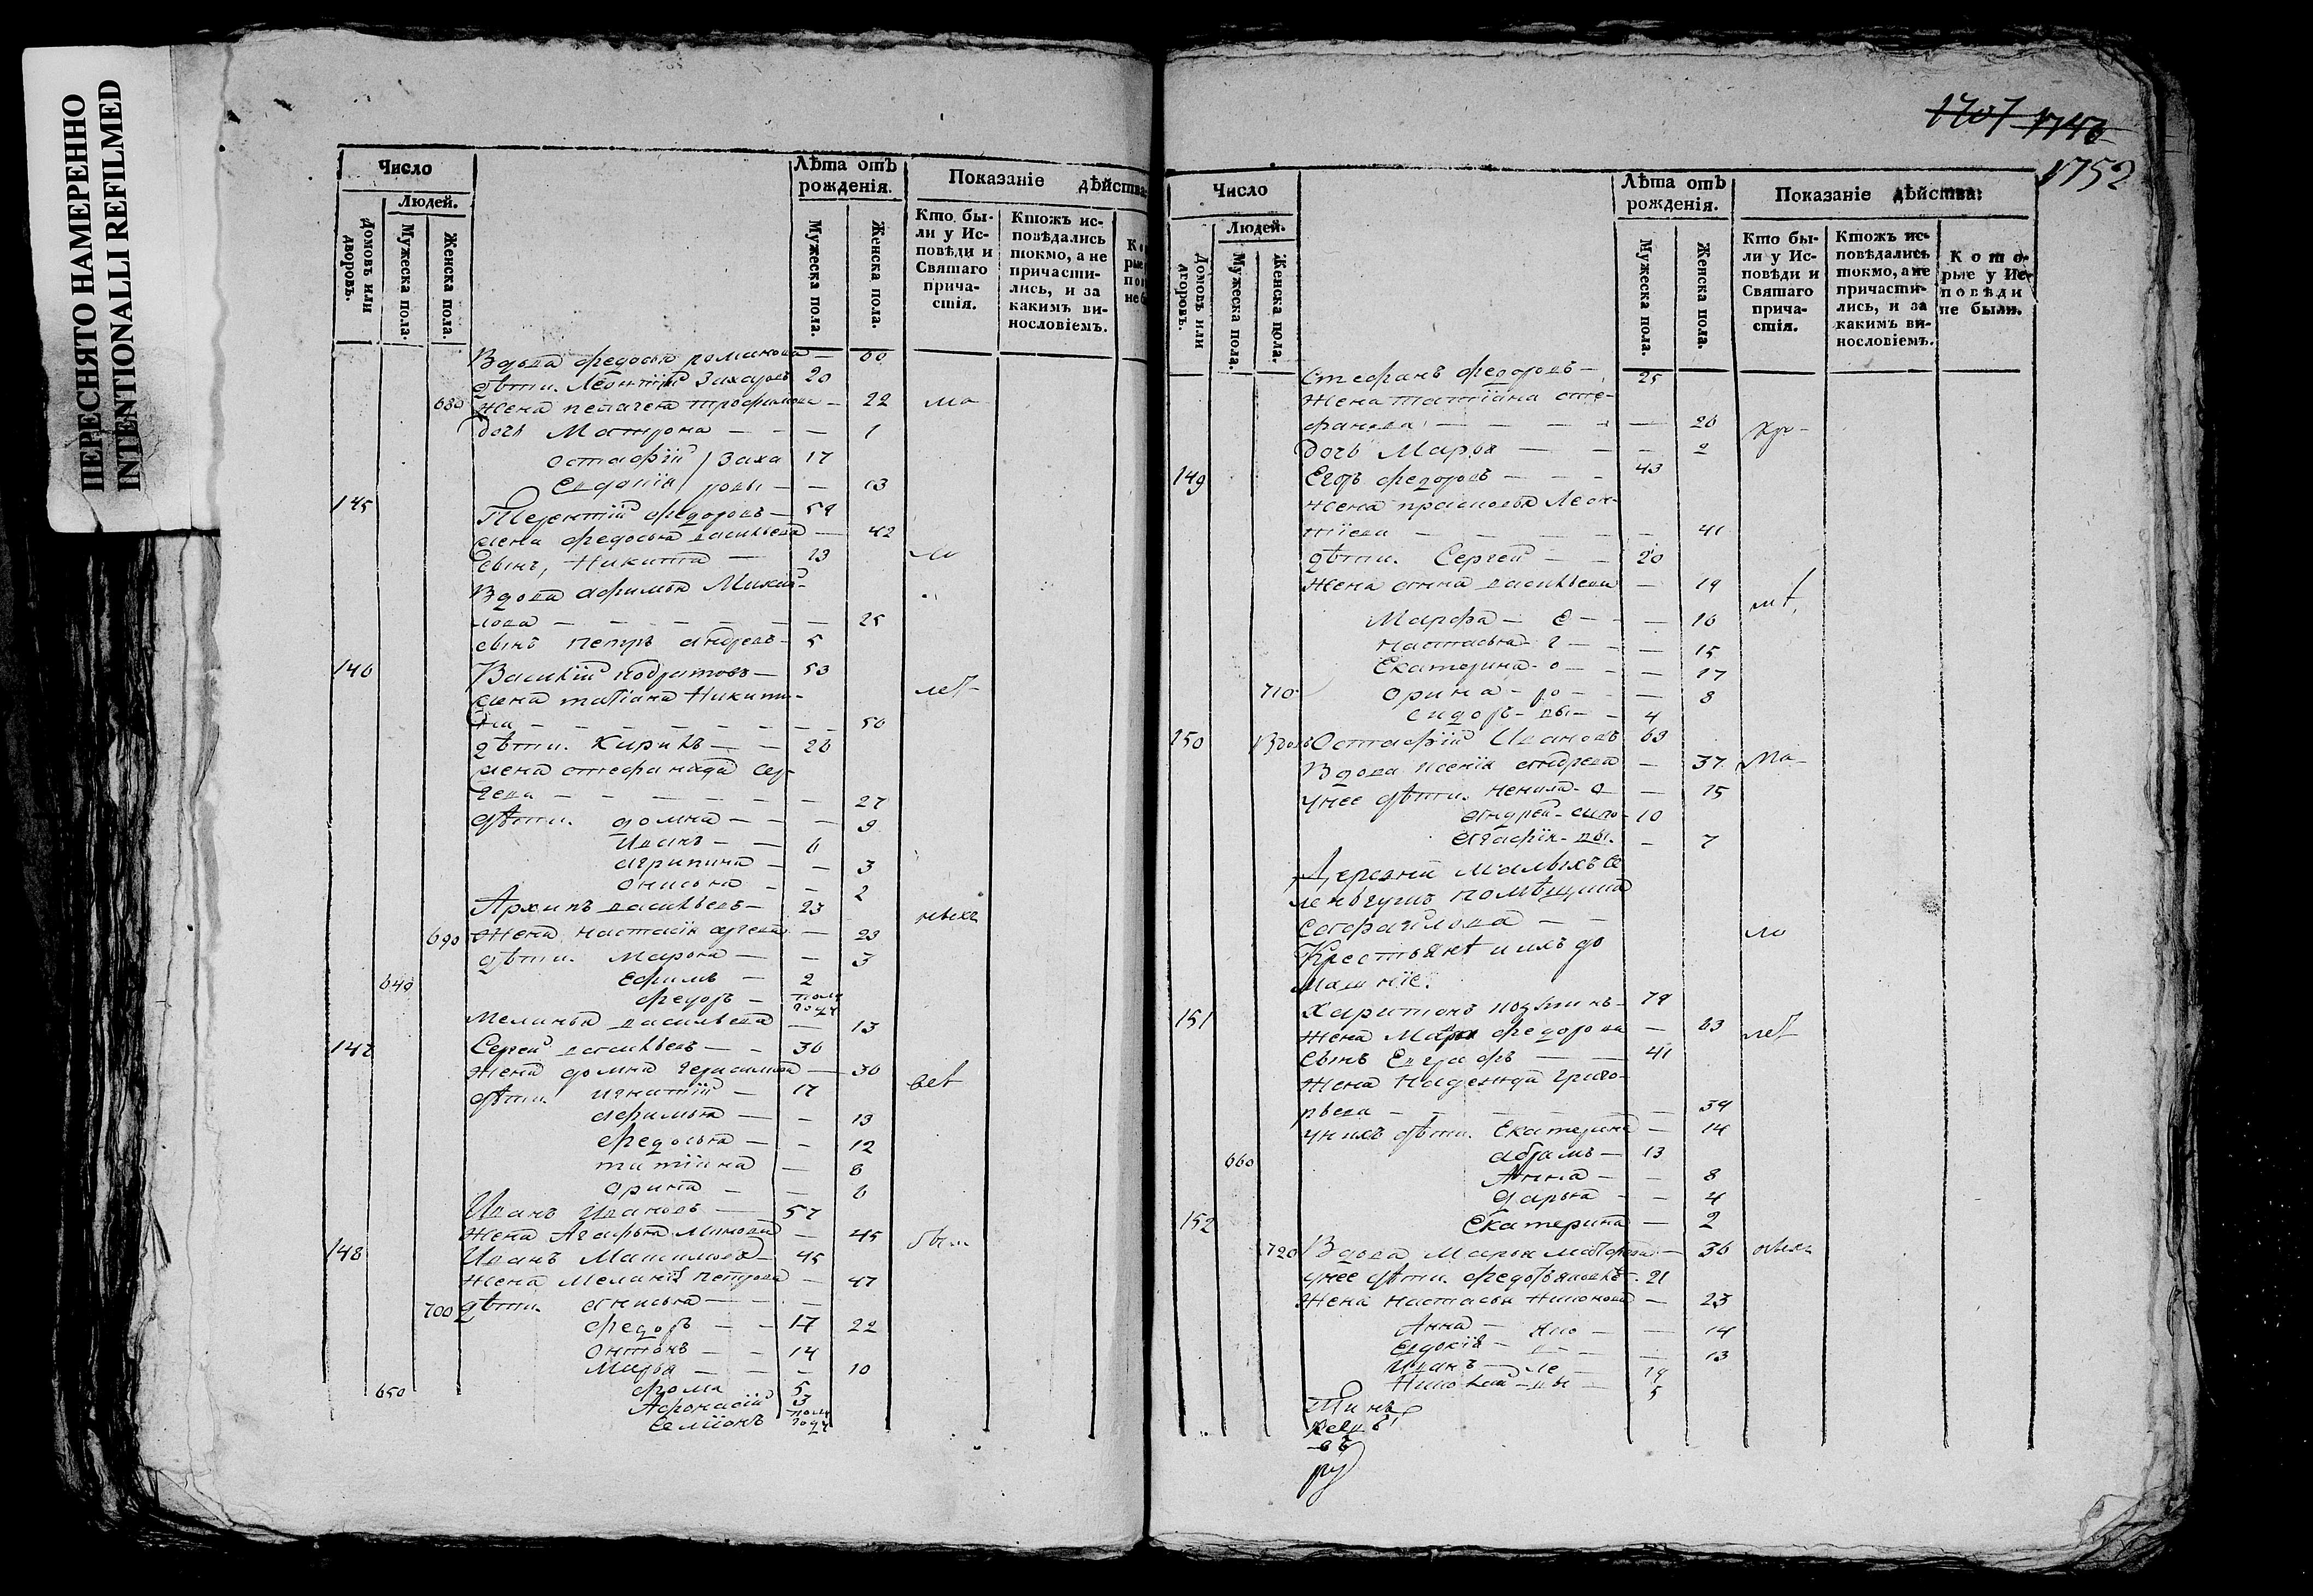 ПЕРЕСНЯТО НАМЕРЕННО
INTENTIONALLI REFILMED
Число
Людей.
Домовъ или дворовъ.
Мужеска пола.
Женска пола.
Лѣта отъ рожденія.
Мужеска пола.
Женска пола.
Показаніе дѣйства:
Кто бы-
ли у Ис-
повѣди и
Святаго
прича-
стія.
Ктожъ ис-
повѣдались
токмо, а не
причасти-
лись, и за
какимъ ви-
нословіемъ.
Вдова федосья романова — 60
дѣти. Леонтій Захаровъ 20
680 жена пелагея трофимова — 22
дочь Матрона — — — 1
остафій / Заха 17
Евдокія / ровы — — 13
145 Терентій федоровъ — 59
жена федосья васильева — 42
сынъ, Никита — 13
Вдова афимья Михаи-
лова — — — — — 25
сынъ петръ андреевъ — 5
146 Василій кодратовъ — 53
жена татіана Никити-
на — — — — — 50
дѣти. Кирилъ — — 26
жена стефанида Сер-
геева — — — — — 27
дѣти. домна — — — 9
Иванъ — — 6
агрипина — — 3
онисья — — 2
Архипъ васильевъ — 23
690 жена настасія — 23
дѣти. Марья — — 3
640 Ефимъ — 2
федоръ — полу году
Меланья васильева — 13
147 Сергей васильевъ — — 36
жена домна герасимова — 36
дѣти. игнатій — 17
афимья — — 13
федосья — — 12
татіана — 8
орина — — 6
Иванъ Ивановъ — 57
жена Агафья Минова — 45
148 Иванъ Максимовъ — 45
жена Меланія петрова — 47
700 дѣти. анисья — — —
федоръ — — 17 22
Онтонъ — — 14
Марья — — — 10
650 фома 5
Афонасій 3
Семіонъ полу году
1707 1746
1752
Число
Людей.
Домовъ или дворовъ.
Мужеска пола.
Женска пола.
Лѣта отъ рожденія.
Мужеска пола.
Женска пола.
Показаніе дѣйства:
Кто бы-
ли у Ис-
повѣди и
Святаго
прича-
стія.
Ктожъ ис-
повѣдались
токмо, а не
причасти-
лись, и за
какимъ ви-
нословіемъ.
Кото-
рые у Ис-
повѣди
не были.
Стефанъ федоровъ — 25
жена татіана сте-
фанова — — — — — 26
дочь Марья — — — 2
149 Егоръ федоровъ — — — 43
жена прасковья Леон-
тіева — — — — — 41
дѣти. Сергей — — 20
жена анна васильева — 19
Марфа — Е — — 16
настасья — г — — 15
Екатерина — о — — 17
710 орина — ро — — 8
сидоръ — вы — 4
150 Вдовъ Остафій Ивановъ 63
Вдова ксенія андреева — 37
у нее дѣти. ненила — 15
андрей — 10
агафія — вы — 7
Деревни Малыхъ Се
помѣщика
Крестьяне и ихъ до
машніе:
151 Харитонъ козминъ — 79
жена Марья федорова — 63
сынъ Евграфъ — — 41
жена Надежда григо-
рьева — — — — — 39
у нихъ дѣти. Екатерина — 14
660 абрамъ — 13
Анна — — 8
дарья — — 4
152 Екатерина — 2
720 Вдова Марья — 36
у нее дѣти. федоръ яковлевъ — 21
жена настасья — 23
Анна — яко — — 14
Евдокія — в — — 13
Иванъ — ле — 19
вы — 5